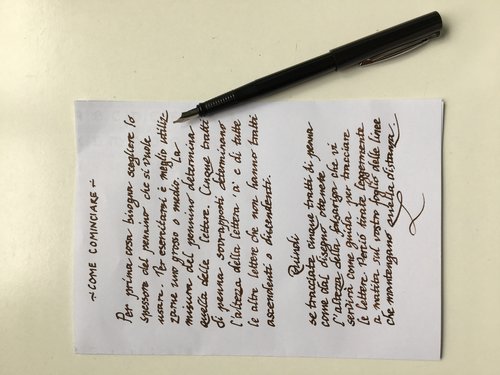 ~COME COMINCIARE~
Per prima cosa bisogna scegliere lo
spessore del pennino che si vuole
usare. Per esercitarvi è meglio utiliz-
zarne uno grosso o medio. La
misura del pennino determina
quella delle lettere. Cinque tratti
di penna sovrapposti determinano
l'altezza della lettera 'a' e di tutte
le altre lettere che non hanno tratti
ascendenti o discendenti.
Quindi
se tracciate cinque tratti di penna
come dal disegno otterrete
l'altezza della base/riga che vi
servirà come guida per tracciare
le lettere. Potete tirate leggermente
a matita sul vostro foglio delle linee
che mantengano quella distanza.